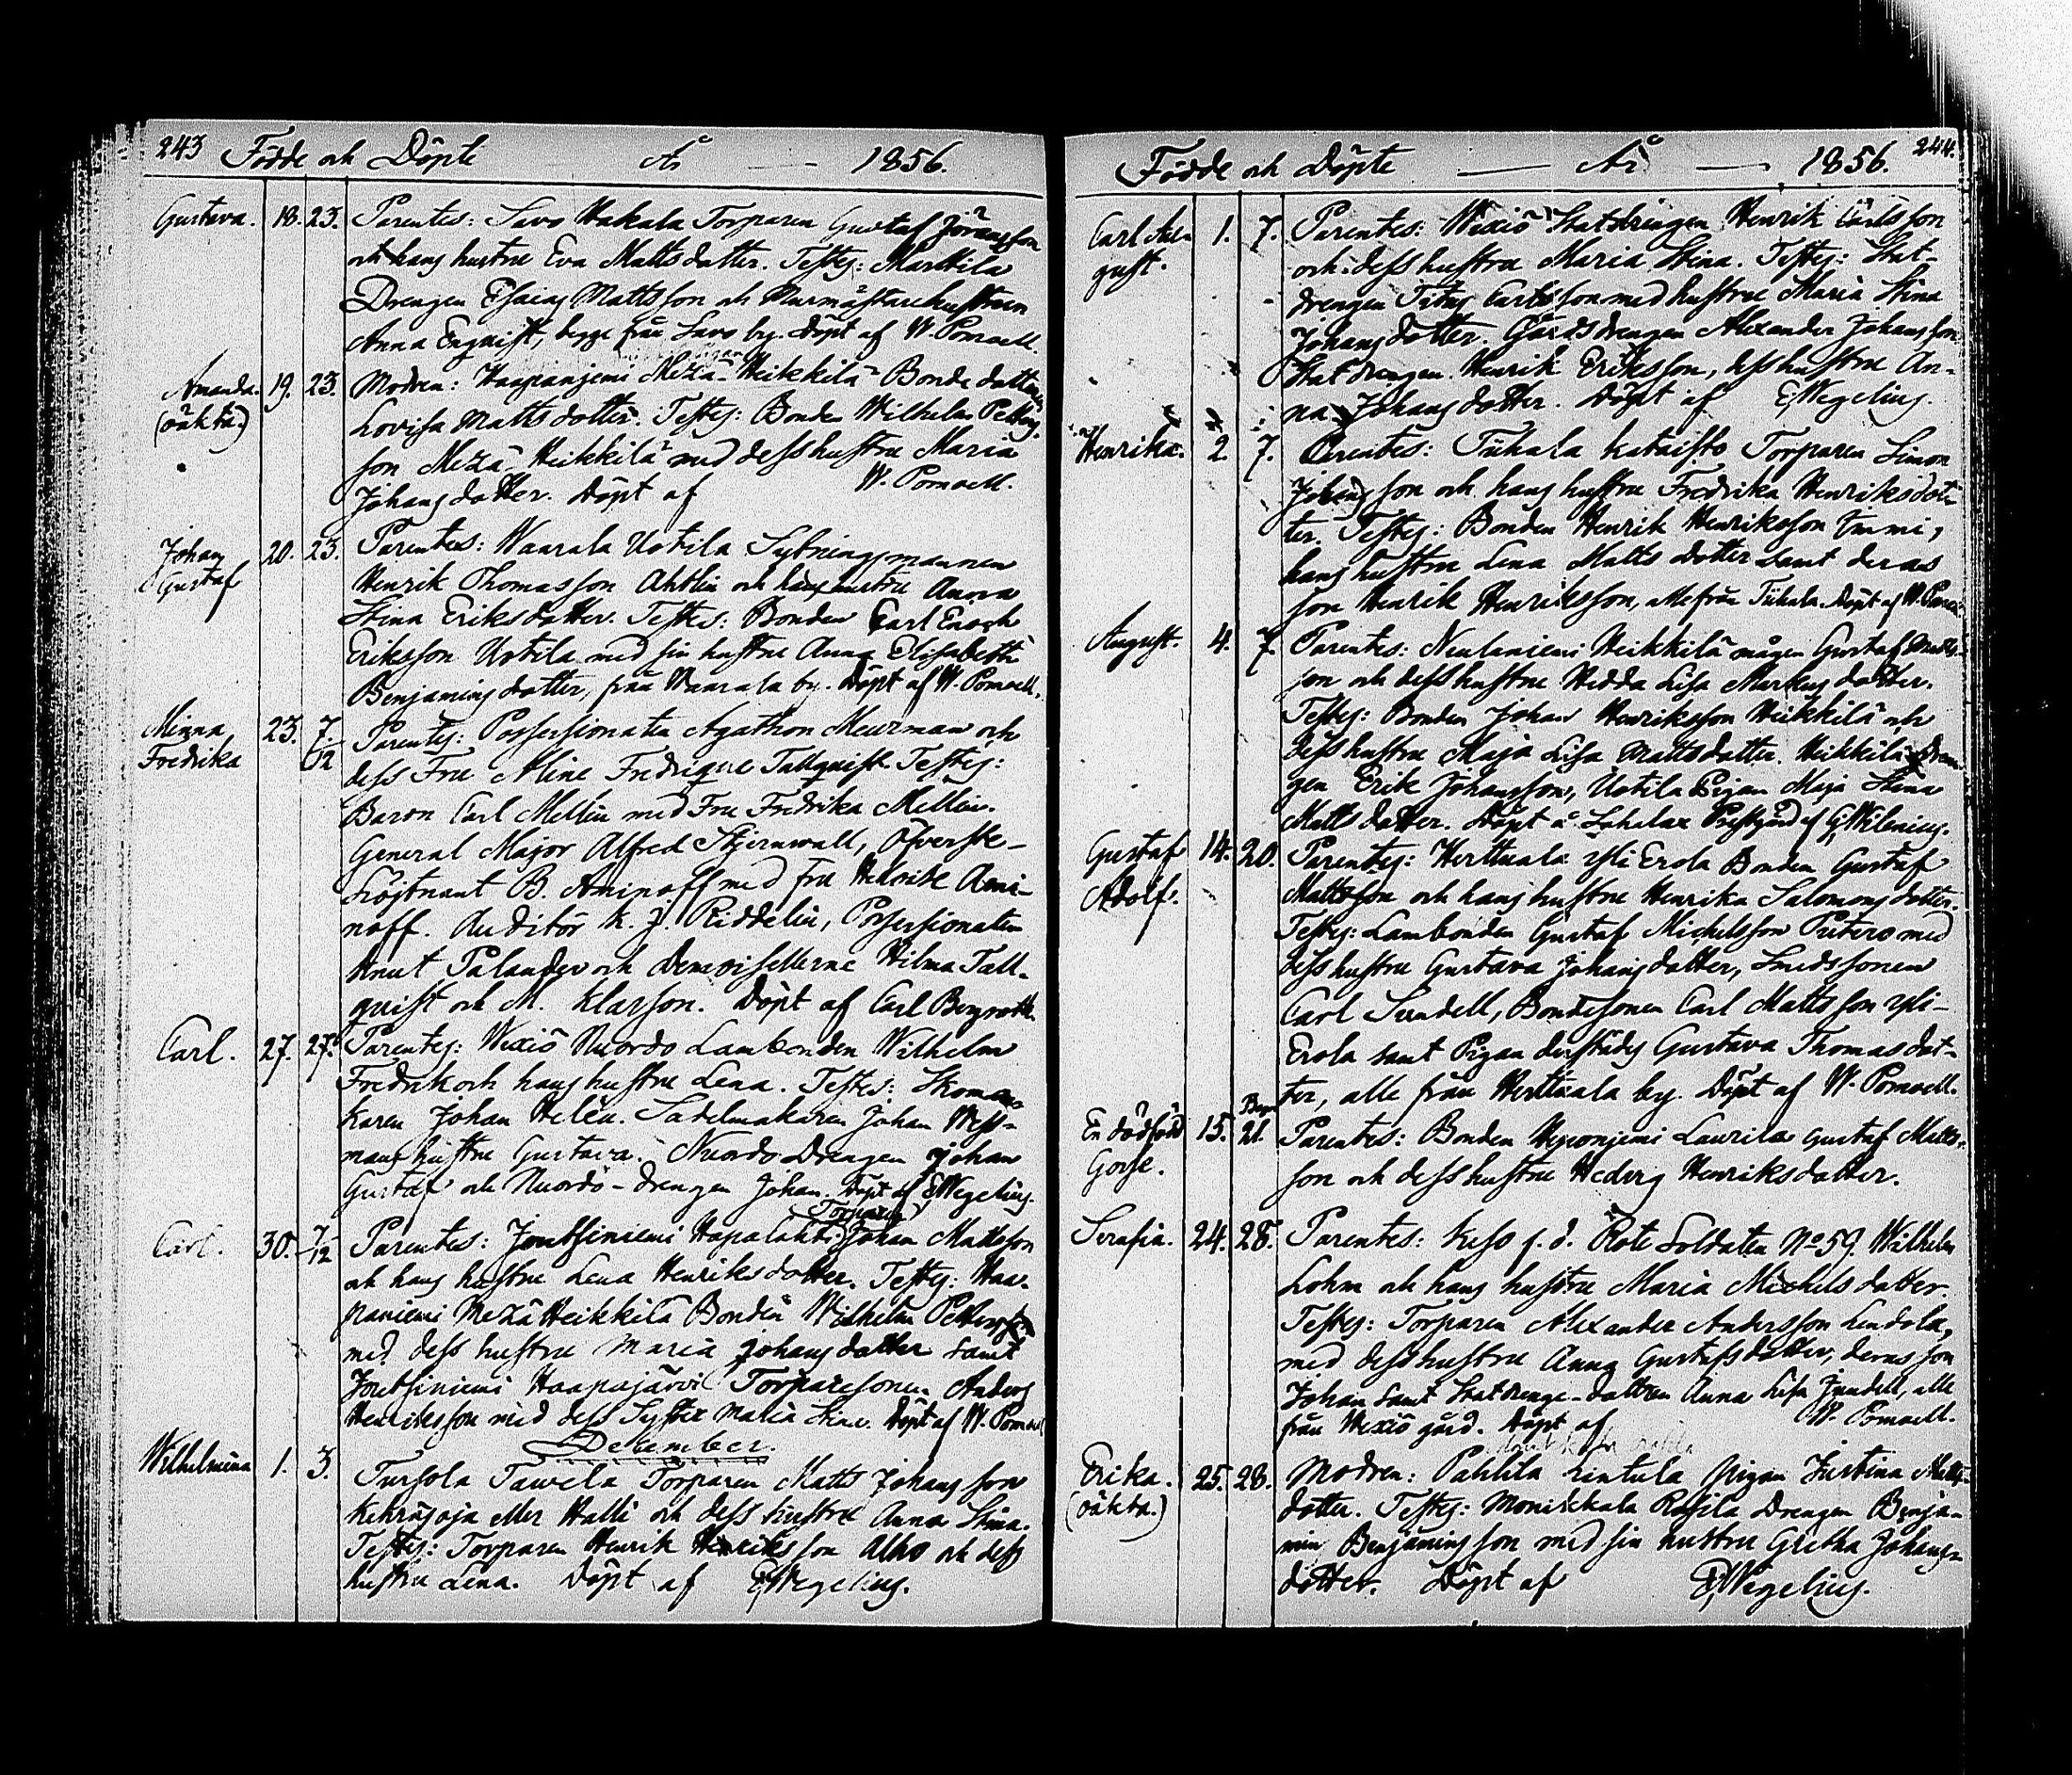 243 Födde och Döpte År — 1856.
Gustava. 18. 23. Parentes: Savo Hakala Torparen Gustaf Jöransson
och hans hustru Eva Matts dotter. Testes: Marttila
Drengen Esaias Mattsson och Murmästarehustrun
Anna Enqvist, begge från Savo by. Döpt af W. Pomoell.
Amanda. 19. 23. Modren: Haapaniemi Mezä-Heikkilä Bonde dottren
(oäkta) Lovisa Matts dotter. Testes: Bonden Wilhelm Petters
son Mezä-Heikkilä med dess hustru Maria
Johans dotter. Döpt af W. Pomoell.
Johan 20. 23. Parentes: Waarala Uotila Sytningsmannen
Gustaf Henrik Thomasson Ahtlin och hans hustru Anna
Stina Eriks dotter. Testes: Bonden Carl Enoch
Eriksson Uotila med sin hustru Anna Elisabeth
Benjamins dotter, från Waarala by. Döpt af W. Pomoell.
Minna 23. 7/12 Parentes: Possessionaten Agathon Meurman och
Fredrika dess Fru Mine Fredrique Tallquist Testes:
Baron Carl Mellin med Fru Fredrika Mellin.
General Major Alfred Stjernvall, Öfverste-
Löjtnant B. Aminoff med fru Ami-
noff. Auditör K. J. Riddelin, Possessionaten
Knut Palander och Demoisellerne Hilma Tall-
quist och M. Klarson. Döpt af Carl Bergroth.
Carl. 27. 27. Parentes: Wexiö Nuordo Lambonden Wilhelm
Fredrik och hans hustru Lena. Testes: Skoma-
karen Johan Helén. Sadelmakaren Johan Wess-
mans hustru Gustava. Nuordo Drengen Johan
Gustaf och Nuordo-drengen Johan. Döpt af E. Wegelius.
Torparen
Carl. 30. 7/12 Parentes: Joutsiniemi Hapalahti Johan Mattsson
och hans hustru Lena Henriks dotter. Testes: Haa-
paniemi Mezä Heikkilä Bonden Wilhelm Pettersson
med dess hustru Maria Johans dotter samt
Joutsiniemi Haapajärvi Torparesonen Anders
Henriksson med dess Syster Maria Stina. Döpt af W. Pomoell
December.
Wilhelmina 1. 3. Tursola Tawela Torparen Matts Johansson
Kehräsoja eller Halli och dess hustru Anna Stina.
Testes: Torparen Henrik Henriksson Alho och dess
hustru Lena. Döpt af E. Wegelius.
Födde och Döpte — År — 1856. 244.
Carl Au- 1. 7. Parentes: Wexiö Statdrengen Henrik Carlsson
gust. och dess hustru Maria Stina. Testes: Stat-
drengen Titus Carlsson med hustru Maria Stina
Johans dotter. Gårdsdrengen Alexander Johansson
Statdrengen Henrik Eriksson, dess hustru An-
na Johans dotter. Döpt af E. Wegelius.
Henrika. 2. 7. Parentes: Tiihala Kataisto Torparen Simon
Johansson och hans hustru Fredrika Henriksdot-
ter. Testes: Bonden Henrik Henriksson Emmi,
hans hustru Lena Matts dotter samt deras
son Henrik Henriksson, alle från Tiihala. Döpt af W. Pomoell
August. 4. 7. Parentes: Neulaniemi Heikkilä mågen Gustaf Matts-
son och dess hustru Hedda Lisa Markus dotter.
Testes: Bonden Johan Henriksson Heikkilä och
dess hustru Maja Lisa Mattsdotter. Heikkilä Dren-
gen Erik Johansson, Uotila Pigan Maja Stina
Matts dotter. Döpt å Sahalax Prestgård af G. Wilenius.
Gustaf 14. 20. Parentes: Herttuala Yli Erola Bonden Gustaf
Adolf. Mattsson och hans hustru Henrika Salomons dotter.
Testes: Lambonden Gustaf Michelsson Pitero med
dess hustru Gustava Johans dotter, Smedssonen
Carl Sundell, Bondesonen Carl Mattsson Yli-
Erola samt Pigan derstädes Gustava Thomas dot-
ter, alle från Herttuala by. Döpt af W. Pomoell.
En dödfödd 15. Begr. 21. Parentes: Bonden Laurila Gustaf Matts-
Gosse. son och dess hustru Hedvig Henriksdotter.
Serafia. 24. 28. Parentes: Keso f. d. Rote Soldaten No 59. Wilhelm
Lohm och hans hustru Maria Michels dotter.
Testes: Torparen Alexander Andersson Lindola,
med dess hustru Anna Gustafs dotter, deras son
Johan samt Statdrenge-dottren Anna Lisa Jundell, alle
från Wexiö gård. Döpt af W. Pomoell.
Erika. 25. 28. Modren: Pahlila Rintula Pigan Justina Matts-
(oäkta.) dotter. Testes: Monikkala Rosila Drengen Benja-
min Benjaminsson med sin hustru Gretha Johans-
dotter. Döpt af E. Wegelius.